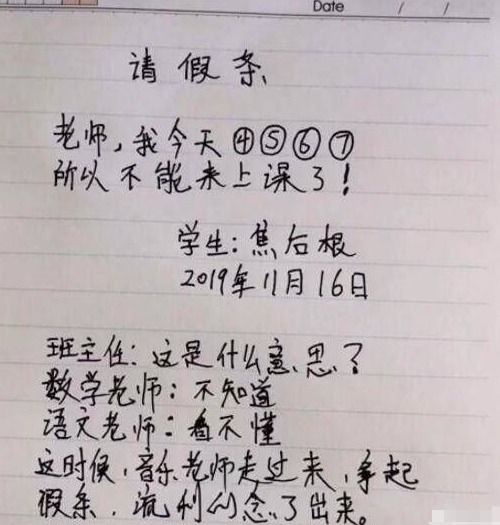 Date / /
请假条
老师,我今天④⑤⑥⑦
所以不能来上课了!
学生:焦后根
2019年11月16日
班主任:这是什么意思?
数学老师:不知道
语文老师:看不懂
这时候,音乐老师走过来,拿起
假条,流利的念了出来。